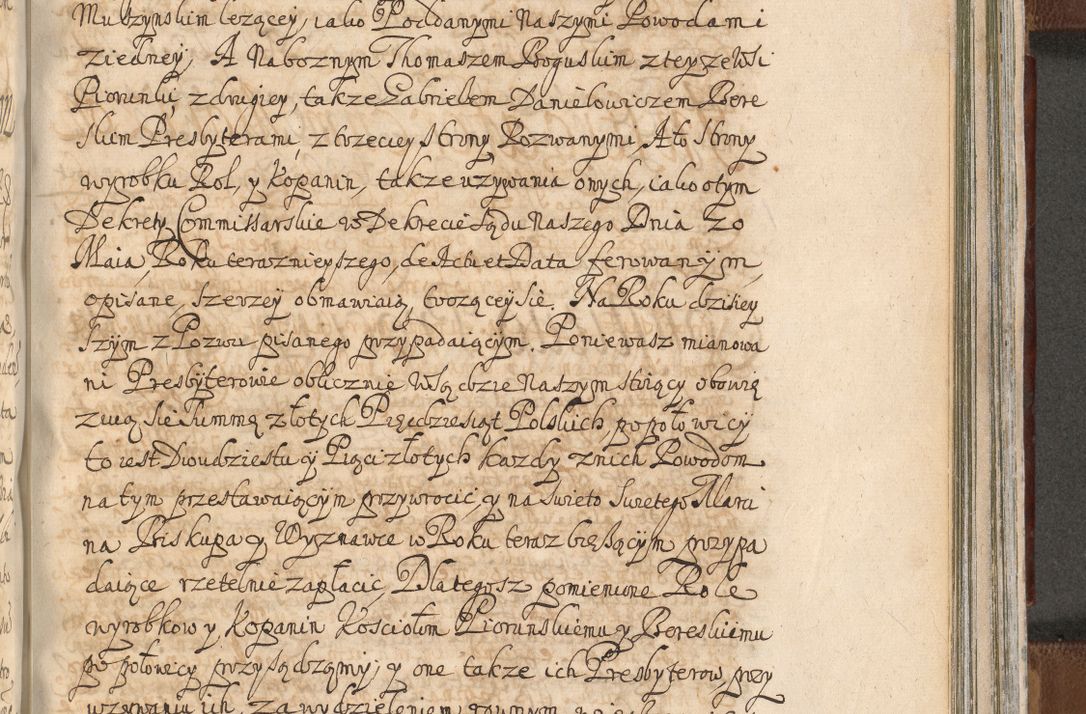 Muszynskim lezącey, iako Poddanymi Naszymi Powodami
ziedney, A Naboznym Thomaszem Boguskim z teyze Wsi
Piorunki, z drugiey, takze Gabrielem Danielowiczem Bere
skim Presbyterami, z trzeciey Strony Pozwanymi, Ato Strony
wyrobku Rol, y Kopanin, takze uzywania onych, iako o tym
Dekrety Commissarskie w Dekrecie Sądu Naszego Dnia 20
Maia, Roku terazniey szego, de Actu et Data ferowanym,
opisane, szerzey obmawiaią, toczącey się. Na Roku dzisiey
szym z Pozwu pisanego przypadaiącym. Poniewasz mianowa
ni Presbyterowie oblicznie w Sądzie Naszym stoiący obowią
zuią się Summę złotych Pięcdziesiąt Polskich po połowicy
to iest Dwudziestu y Pięci złotych kazdy znich Powodom
na tym przestawaiącym przywrocić, y na Swieto Swietego Marci
na Biskupa y Wyznawce w Roku teraz biezącym przypa
daiące rzetelnie zapłacic, Dlategosz pomienione Role
wyrobkow y Kopanin Kosciołom Piorunskiemu y Bereskiemu
po połowicy przysądzamy, y one takze ich Presbyterow, przy
uzywaniu ich, za wydzieleniem rownym